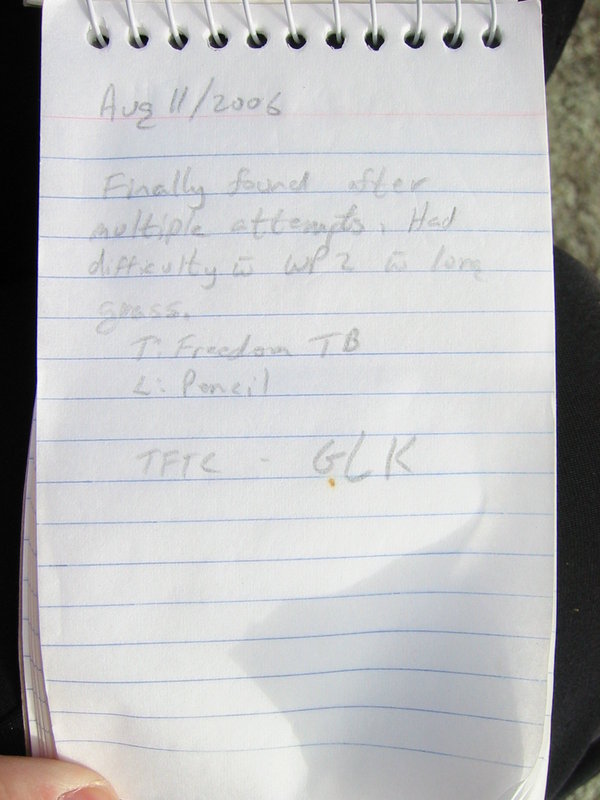 Aug 11/2006
Finally found after
multiple attempts. Had
difficulty w̄ WP 2 w̄ long
grass.
T: Freedom TB
L: Pencil
TFTC - GLK